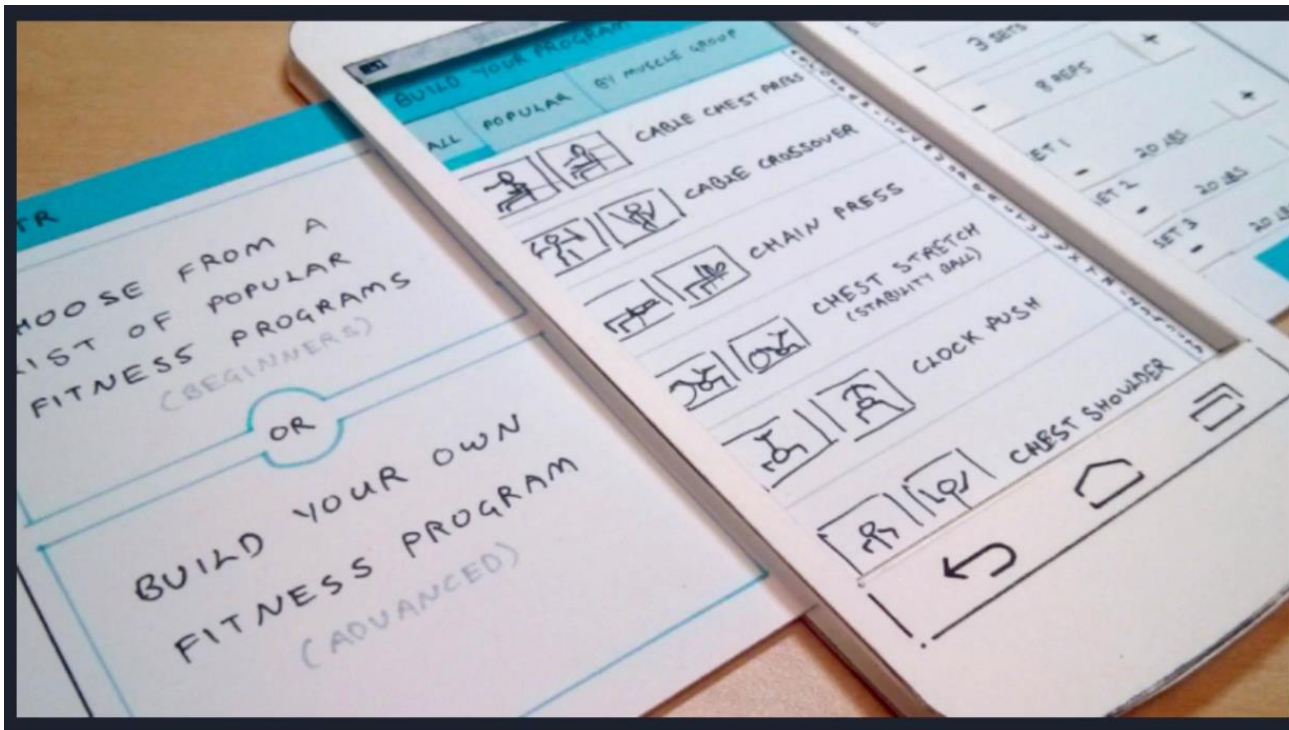 TR
HOOSE FROM A
LIST OF POPULAR
FITNESS PROGRAMS
(BEGINNERS)
OR
BUILD YOUR OWN
FITNESS PROGRAM
(ADVANCED)
BUILD YOUR PROGRAM
ALL POPULAR BY MUSCLE GROUP
CABLE CHEST PRESS
CABLE CROSSOVER
CHAIN PRESS
CHEST STRETCH
(STABILITY BALL)
CLOCK PUSH
CHEST SHOULDER
3 SETS
- 8 REPS +
ET 1
- 20 LBS +
SET 2
- 20 LBS
SET 3
- 20 LB